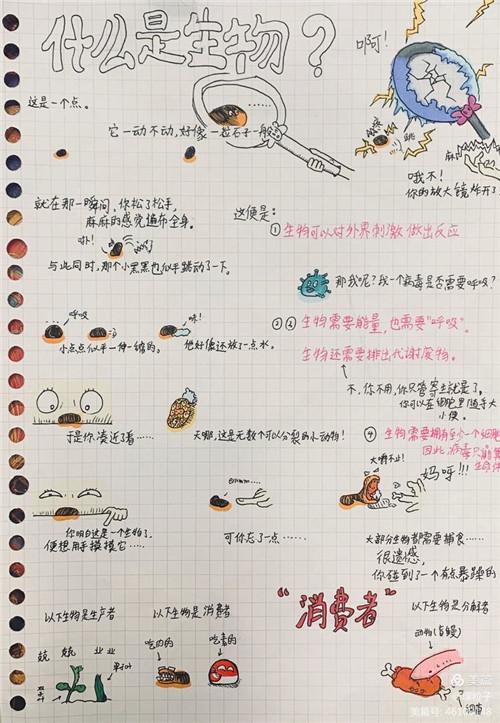 什么是生物?
啊!
这是一个点。
它一动不动,好像一粒石子一般
麻麻
跳
哦不!
你的放大镜炸开了
就在那一瞬间,你松了松手,
麻麻的感觉遍布全身。
与此同时,那个小黑黑也似乎跳动了一下。
这便是:
①生物可以对外界刺激做出反应
那我呢?我一个病毒是否需要呼吸?
呼吸
咻!
小点点似乎一伸一缩的。
他好像还放了一点水。
②③生物需要能量,也需要“呼吸”。
生物还需要排出代谢废物。
不,你不用,你只管寄生就是了。
你可以在细胞里随
小便。
于是你凑近了看……
天哪,这是无数个可以分裂的小动物!
④生物需要拥有至少一个细胞
因此,病毒只能算
生命体
大嘴不止!
妈呀!!!
emmm……
你明白这是一个生物了,
便想用手摸摸它……
可你忘了一点……
大部分生物都需要捕食……
很遗憾,
你碰到了一个有点暴躁的
“消费者”
以下生物是生产者
以下生物是消费者
以下生物是分解者
吃肉的
吃素的
细菌